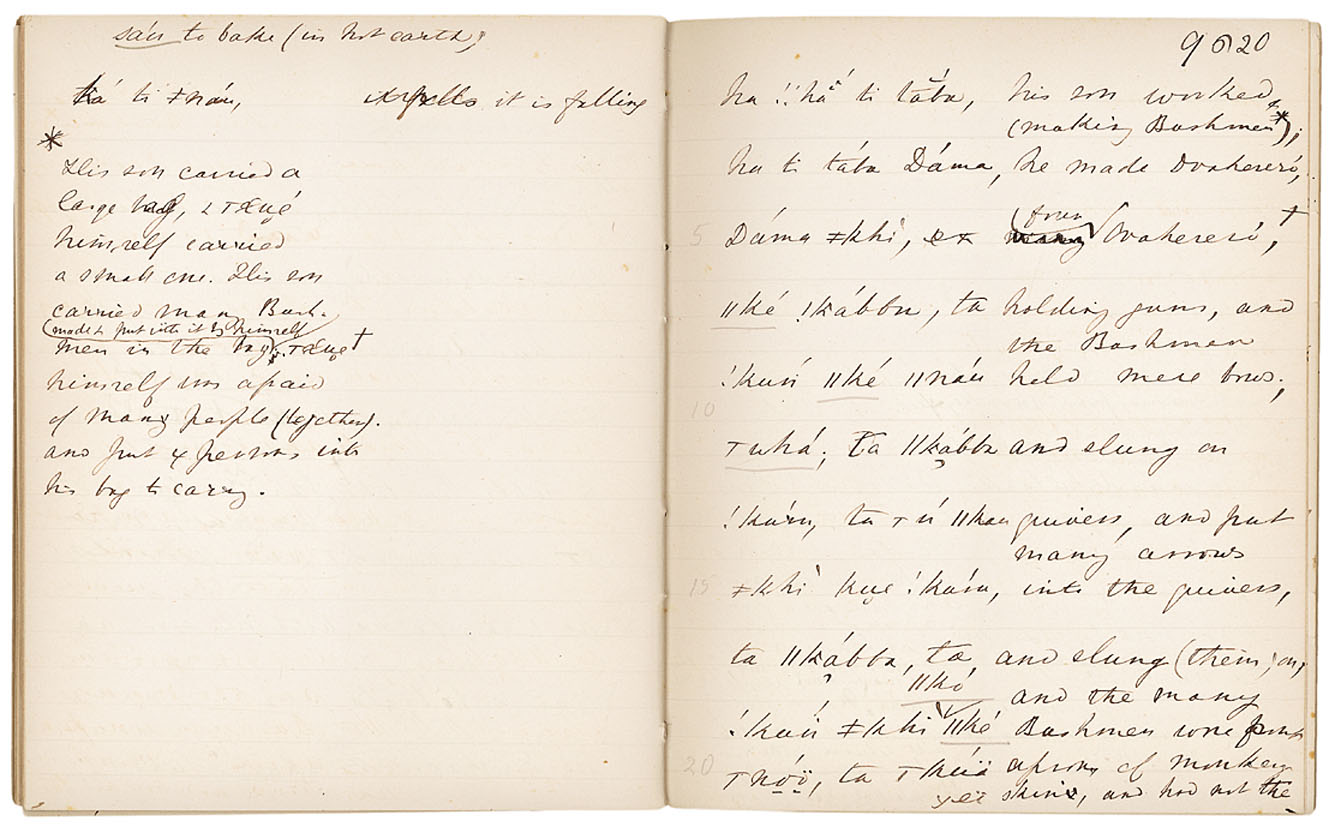 sáu to bake (in hot earth)
ká ti ǂnáu, it is falling
*
His son carried a
large bag,
himself carried
a small one. His son
carried many Bush-
(made & put into it by himself
men in the bag; †
himself was afraid
of many people (together).
and put 4 persons into
his bag to carry.
9620
ha ti tába, his son worked
(making Bushmen*);
ha ti tába Dáma, he made Ovahereró,
(four)
5 Dáma ǂkhí, many Ovahereró, †
ǁké ǃkábbu, ta holding guns, and
the Bushmen
ǃkuń ǁké ǁnáu held mere bows;
10
ta ǁkábba and slung on
ǃkúru, ta quivers, and put
many arrows
15 ǂkhi kue ǃkúru, into the quivers,
ta ǁkábba, ta and slung (them) on,
ǁkó and the many
ǃkuń ǂkhi ǁké Bushmen wore front
20 ta aprons of monkey
skins, and had not the